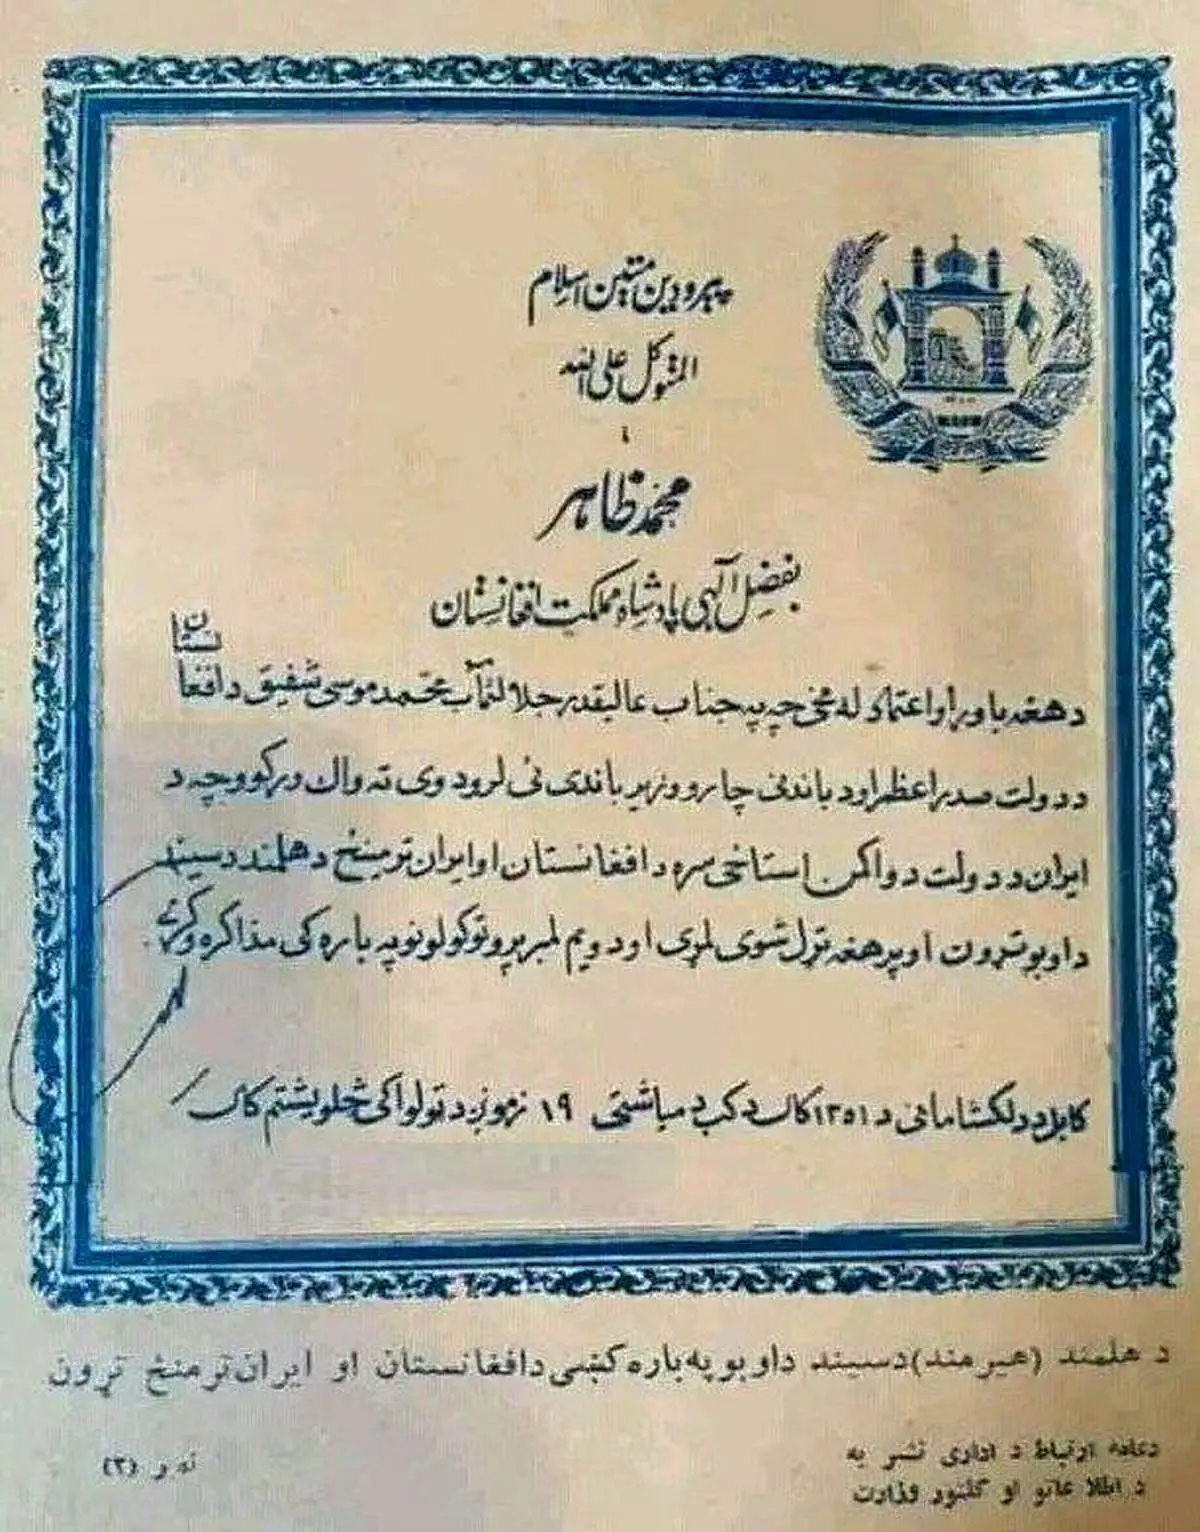 پیرو دین متین اسلام
المتوکل علی الله
محمد ظاهر
بفضل الهی پادشاه مملکت افغانستان
د هغه باور او اعتماد له مخی چه په جناب عالیقدر جلالتمآب محمد موسی شفیق د افغانستان
د دولت صدر اعظم او د باندنی چارو وزیر باندی ئی لرو دوی ته واک ورکوو چه د
ایران د دولت د واکمن استاخی سره د افغانستان او ایران ترمینځ د هلمند د سیند
د اوبو تړون او پر هغه تړل شوی لمړی او دویم لمبر پروتوکولونو په باره کی مذاکره وکړی.
کابل د دلکشا مانی د ۱۳۵۱ کال د کب د میاشتی ۱۹ زمونږ د ټولواکی څلویښتم کال
د هلمند (هیرمند) د سیند د اوبو په باره کښی د افغانستان او ایران ترمنځ تړون
دعامه ارتباط د اداری نشریه
د اطلاعاتو او کلتور وزارت
نمبر (۳)